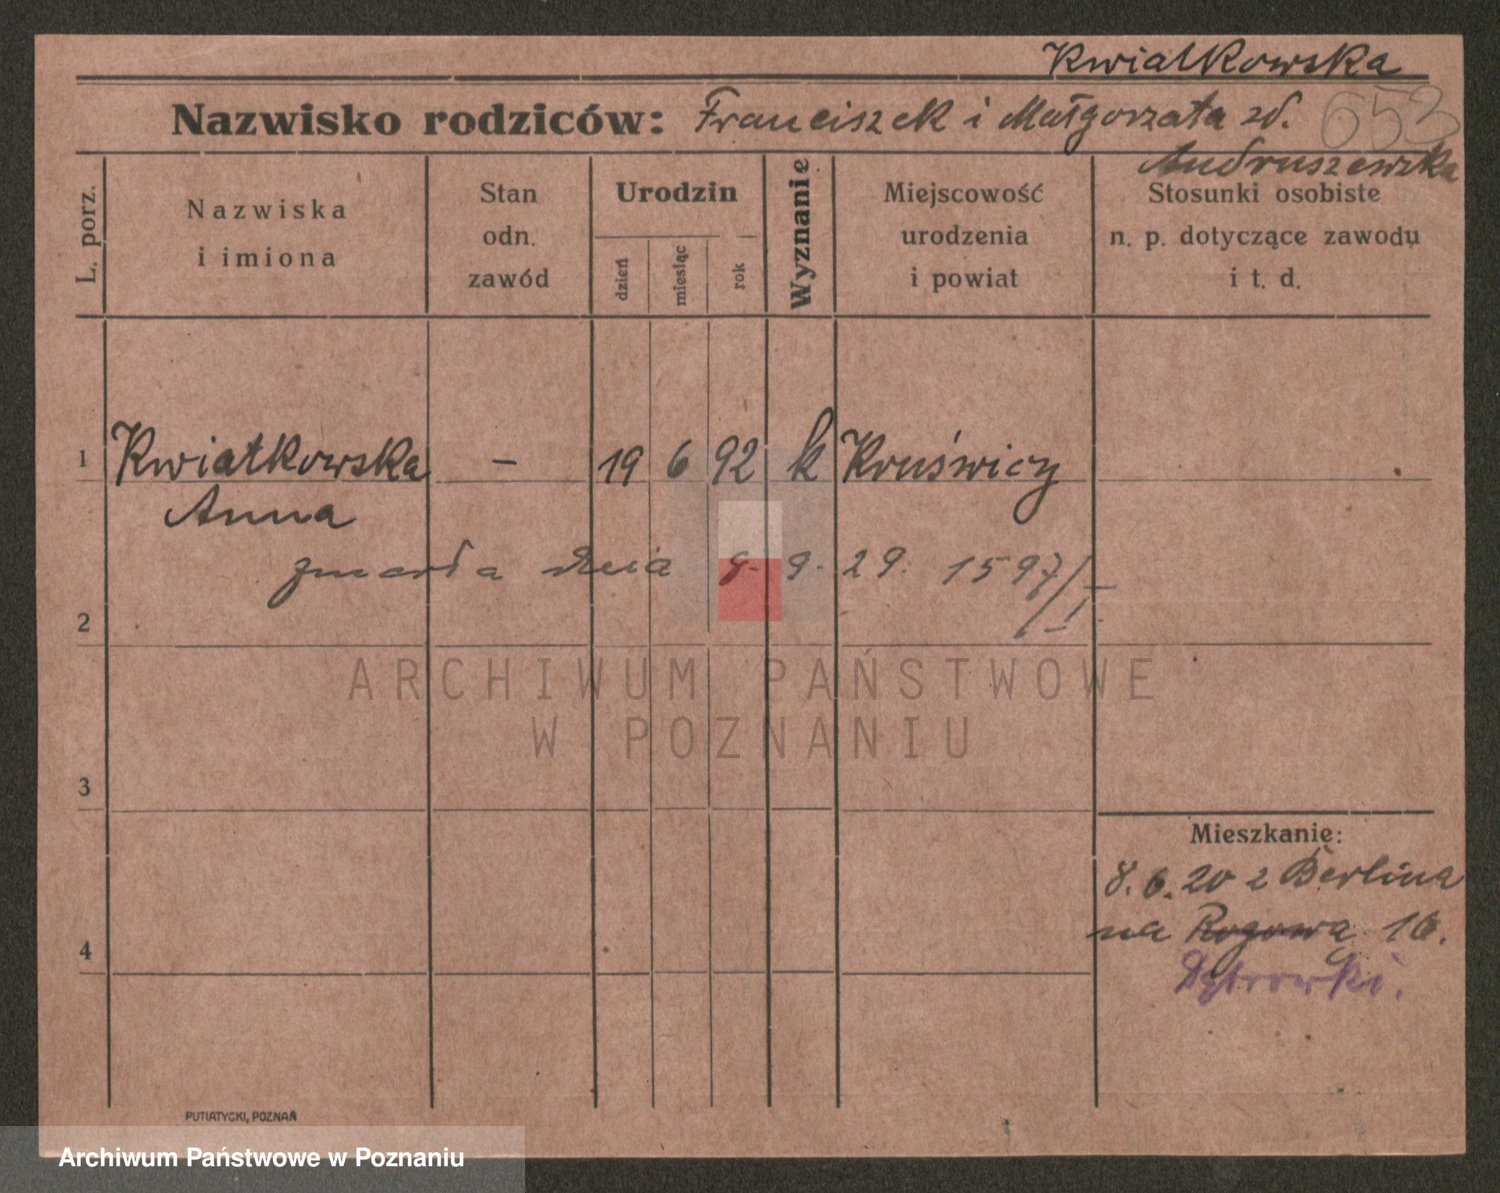 Kwiatkowska
Nazwisko rodziców: Franciszek i Małgorzata zd.
653
Andruszewska
L. porz.
Nazwiska
i imiona
Stan
odn.
zawód
Urodzin
dzień
miesiąc
rok
Wyznanie
Miejscowość
urodzenia
i powiat
Stosunki osobiste
n. p. dotyczące zawodu
i t. d.
1 Kwiatkowska — 19 6 92 k Kruświcy
Anna
zmarła dnia 8. 9. 29. 1597/I
2
ARCHIWUM PAŃSTWOWE
W POZNANIU
3
Mieszkanie:
8. 6. 20 z Berlina
na Rogowa 16.
4
Dąbrowki.
PUTIATYCKI, POZNAŃ
Archiwum Państwowe w Poznaniu